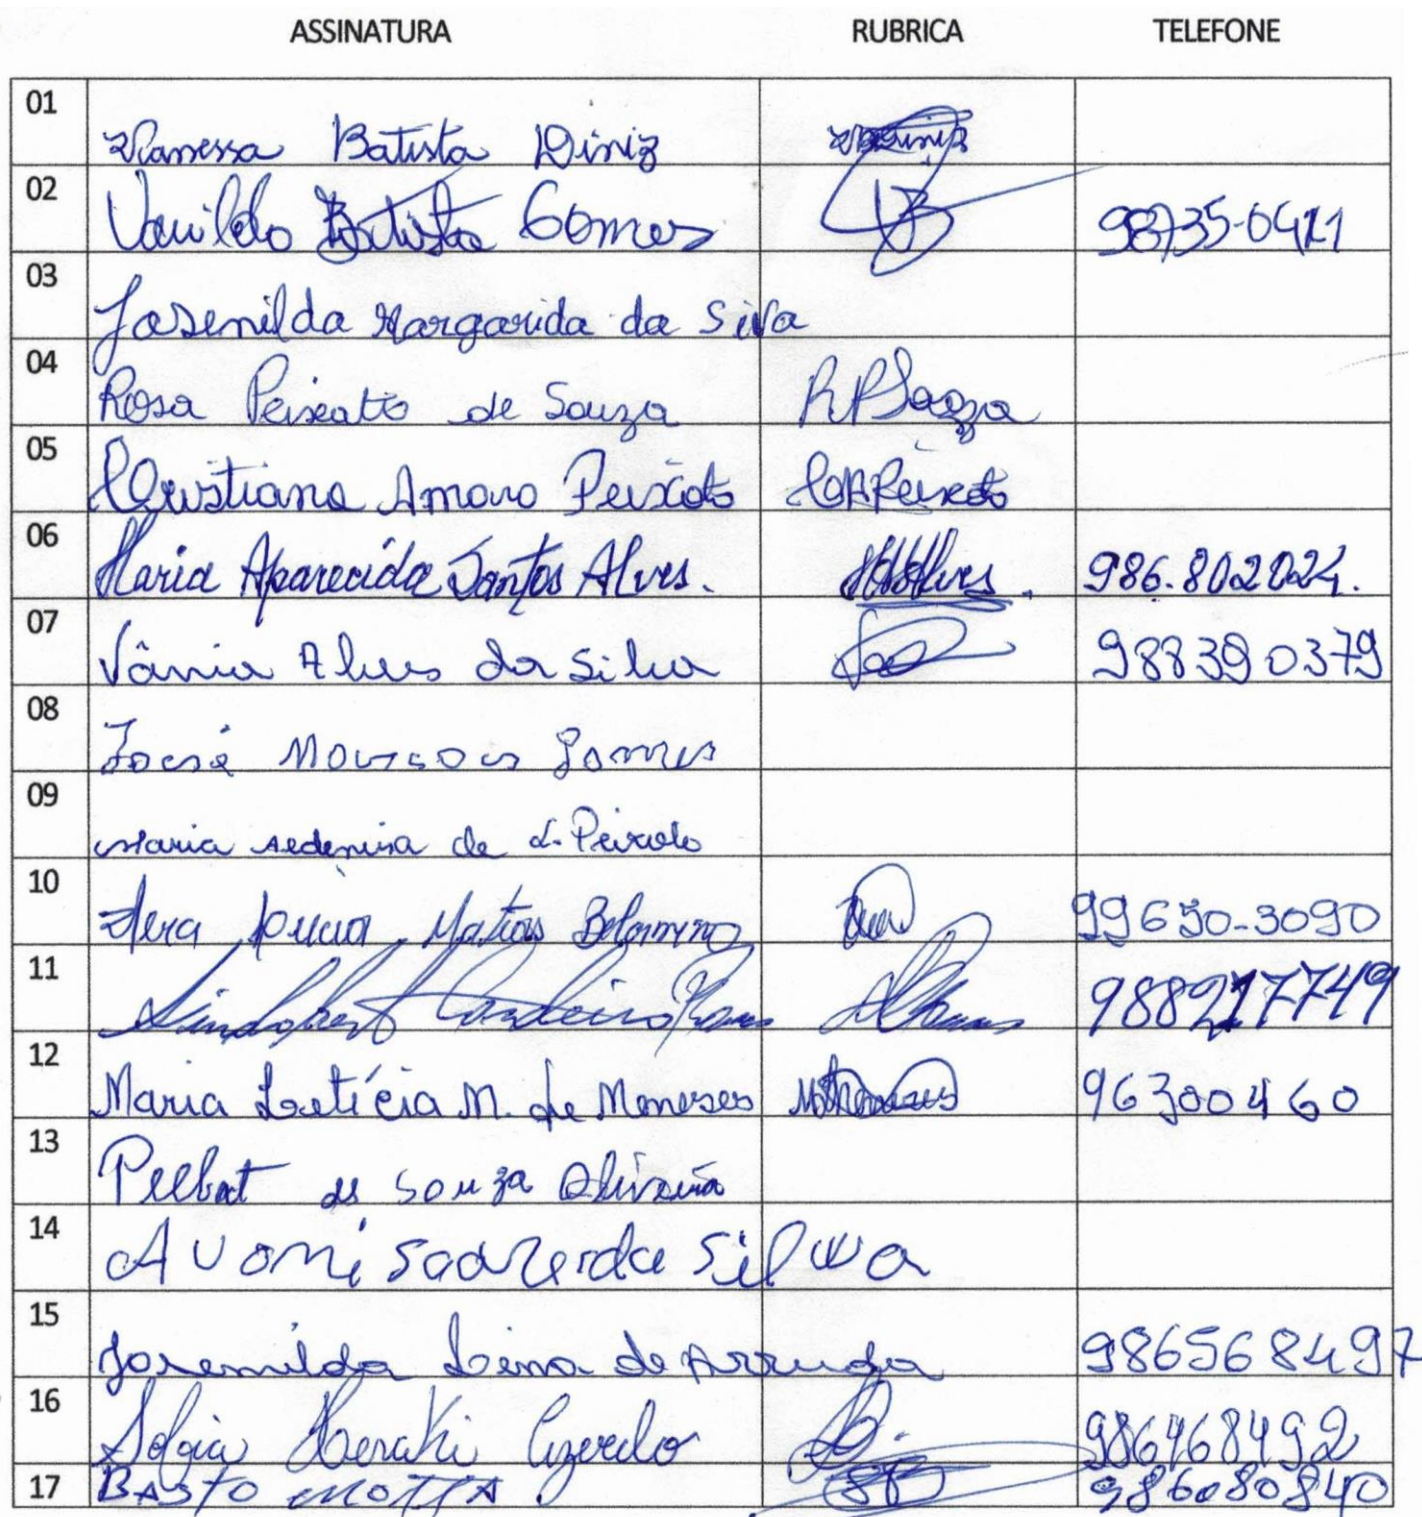 ASSINATURA RUBRICA TELEFONE
01 Vanessa Batista Diniz VBDiniz
02 Vanildo Batista Gomes VB 98735-0411
03 Josenilda Margarida da Silva
04 Rosa Peixoto de Souza RPSouza
05 Cristiana Amaro Peixoto CAPeixoto
06 Maria Aparecida Santos Alves. 986.802024.
07 Vânia Alves da Silva 988390379
08 José Gomes
09 Maria de L. Peixoto
10 Vera Lúcia Matias Belarmino 99650-3090
11 Cordeiro 988217749
12 Maria Letícia M. de Meneses 96300460
13 de Souza Oliveira
14 Silva
15 Josenilda Lima de Arruda 986568497
16 Azevedo 986468492
17 BASTO MOTTA 986080840